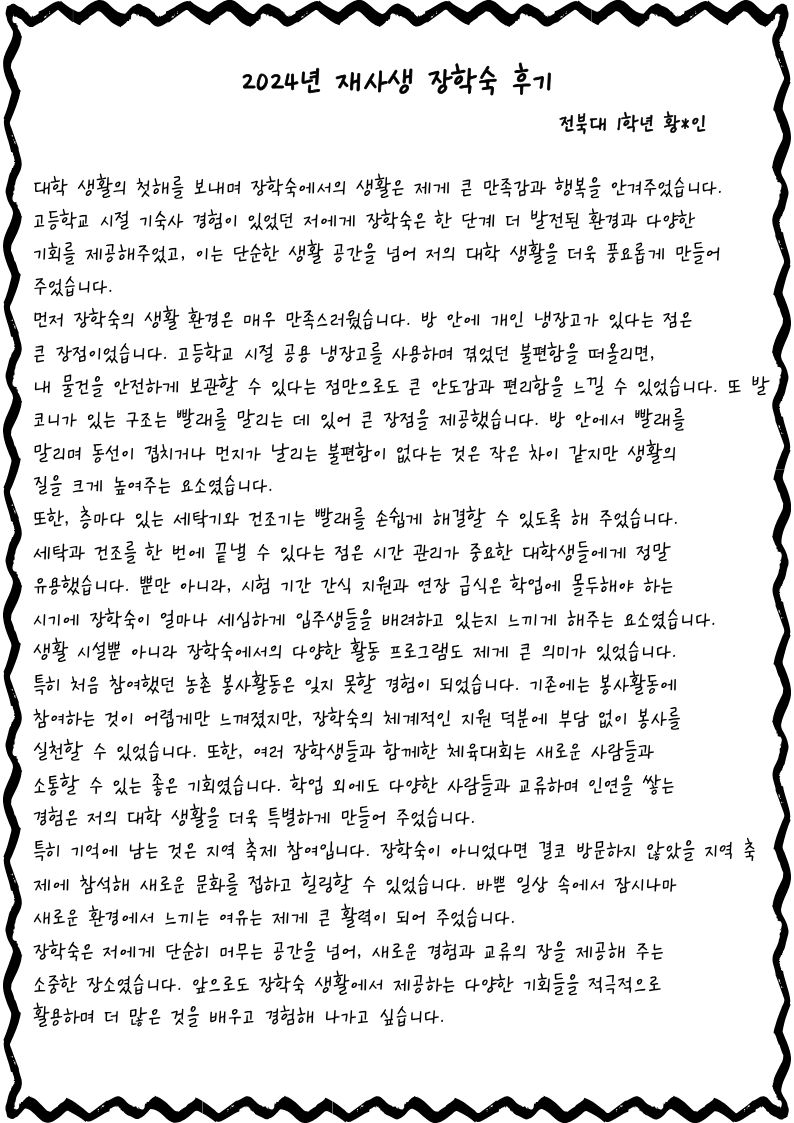 2024년 재사생 장학숙 후기
전북대 1학년 황*인
대학 생활의 첫해를 보내며 장학숙에서의 생활은 제게 큰 만족감과 행복을 안겨주었습니다.
고등학교 시절 기숙사 경험이 있었던 저에게 장학숙은 한 단계 더 발전된 환경과 다양한
기회를 제공해주었고, 이는 단순한 생활 공간을 넘어 저의 대학 생활을 더욱 풍요롭게 만들어
주었습니다.
먼저 장학숙의 생활 환경은 매우 만족스러웠습니다. 방 안에 개인 냉장고가 있다는 점은
큰 장점이었습니다. 고등학교 시절 공용 냉장고를 사용하며 겪었던 불편함을 떠올리면,
내 물건을 안전하게 보관할 수 있다는 점만으로도 큰 안도감과 편리함을 느낄 수 있었습니다. 또 발
코니가 있는 구조는 빨래를 말리는 데 있어 큰 장점을 제공했습니다. 방 안에서 빨래를
말리며 동선이 겹치거나 먼지가 날리는 불편함이 없다는 것은 작은 차이 같지만 생활의
질을 크게 높여주는 요소였습니다.
또한, 층마다 있는 세탁기와 건조기는 빨래를 손쉽게 해결할 수 있도록 해 주었습니다.
세탁과 건조를 한 번에 끝낼 수 있다는 점은 시간 관리가 중요한 대학생들에게 정말
유용했습니다. 뿐만 아니라, 시험 기간 간식 지원과 연장 급식은 학업에 몰두해야 하는
시기에 장학숙이 얼마나 세심하게 입주생들을 배려하고 있는지 느끼게 해주는 요소였습니다.
생활 시설뿐 아니라 장학숙에서의 다양한 활동 프로그램도 제게 큰 의미가 있었습니다.
특히 처음 참여했던 농촌 봉사활동은 잊지 못할 경험이 되었습니다. 기존에는 봉사활동에
참여하는 것이 어렵게만 느껴졌지만, 장학숙의 체계적인 지원 덕분에 부담 없이 봉사를
실천할 수 있었습니다. 또한, 여러 장학생들과 함께한 체육대회는 새로운 사람들과
소통할 수 있는 좋은 기회였습니다. 학업 외에도 다양한 사람들과 교류하며 인연을 쌓는
경험은 저의 대학 생활을 더욱 특별하게 만들어 주었습니다.
특히 기억에 남는 것은 지역 축제 참여입니다. 장학숙이 아니었다면 결코 방문하지 않았을 지역 축
제에 참석해 새로운 문화를 접하고 힐링할 수 있었습니다. 바쁜 일상 속에서 잠시나마
새로운 환경에서 느끼는 여유는 제게 큰 활력이 되어 주었습니다.
장학숙은 저에게 단순히 머무는 공간을 넘어, 새로운 경험과 교류의 장을 제공해 주는
소중한 장소였습니다. 앞으로도 장학숙 생활에서 제공하는 다양한 기회들을 적극적으로
활용하며 더 많은 것을 배우고 경험해 나가고 싶습니다.